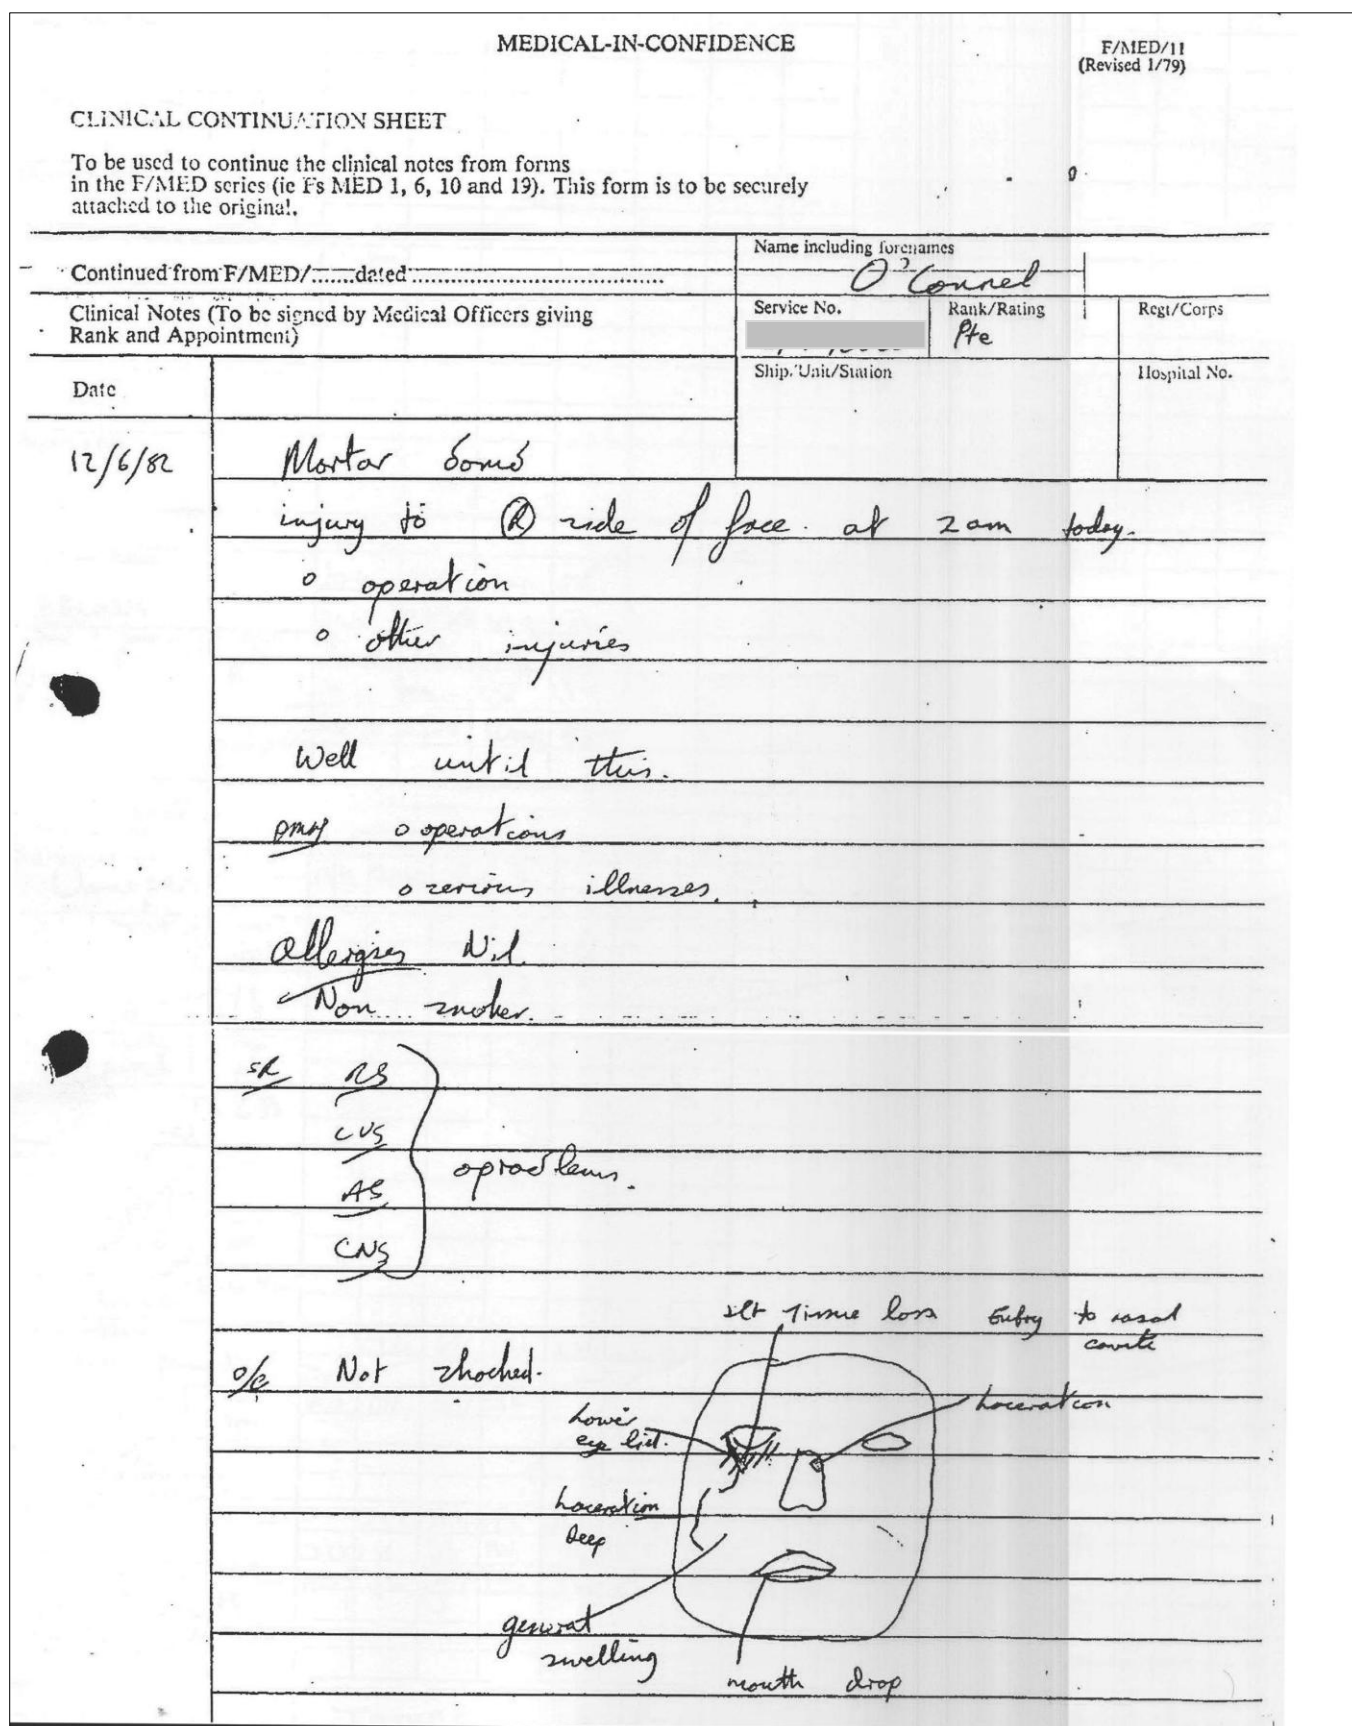 MEDICAL-IN-CONFIDENCE
F/MED/11
(Revised 1/79)
CLINICAL CONTINUATION SHEET
To be used to continue the clinical notes from forms
in the F/MED series (ie Fs MED 1, 6, 10 and 19). This form is to be securely
attached to the original.
Name including forenames
O'Connel
Continued from F/MED/.......dated
Clinical Notes (To be signed by Medical Officers giving
Rank and Appointment)
Service No.
Rank/Rating
Pte
Regt/Corps
Date
Ship/Unit/Station
Hospital No.
12/6/82
Mortar bomb
injury to (R) side of face. at 2am today.
o operation
o other injuries
Well until this.
PMH o operations
o serious illnesses.
Allergies Nil.
Non smoker.
SR RS
CVS
AS
CNS
o problems.
slt Tissue loss Entry to nasal
cavite
o/e Not shocked.
Laceration
Lower
eye lid.
Laceration
deep
general
swelling
mouth drop